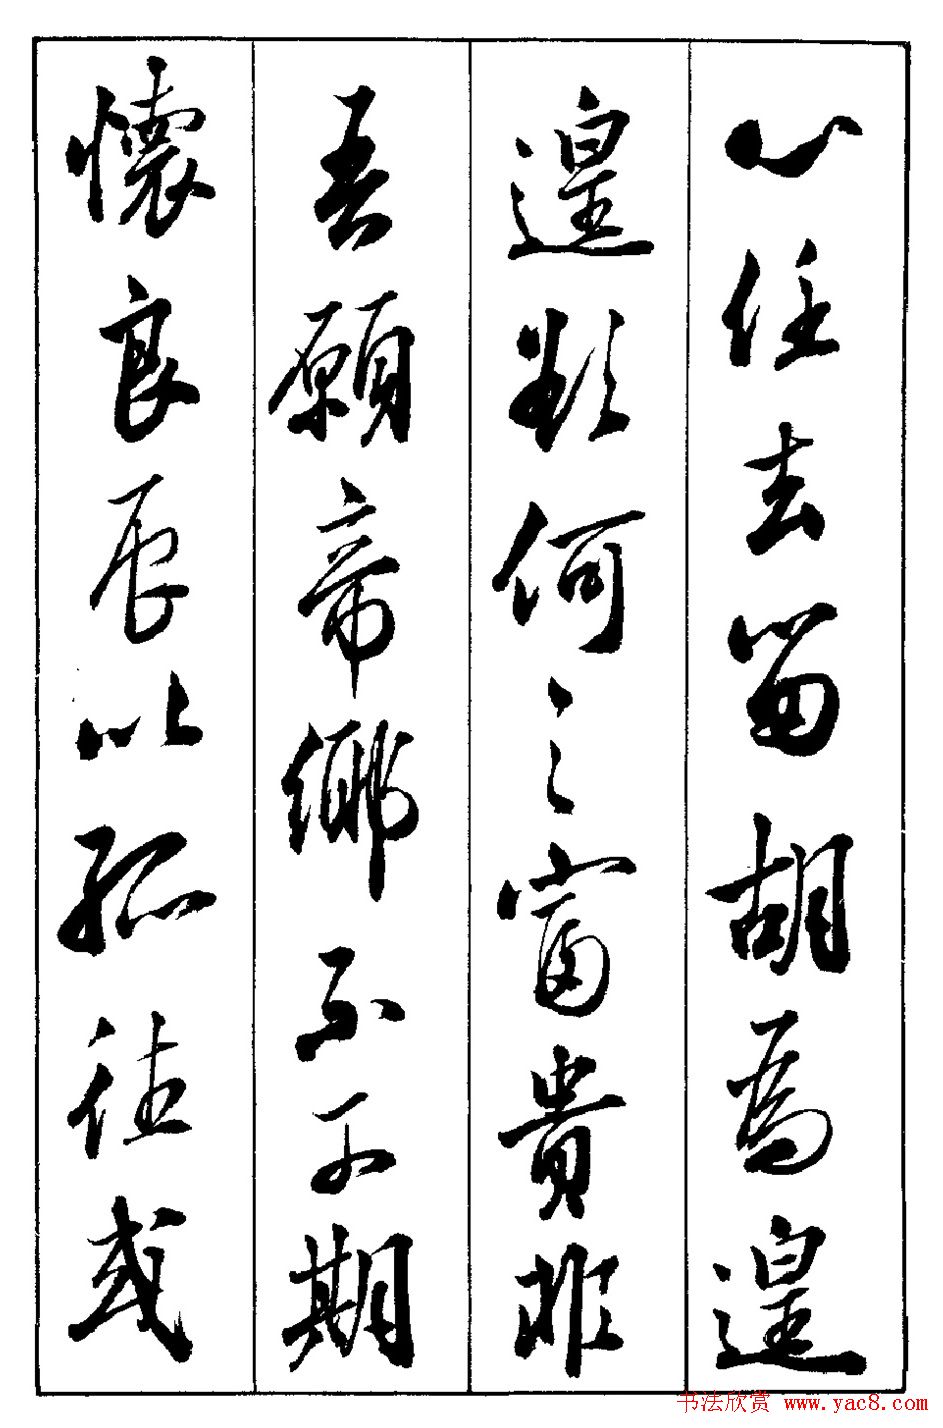 心任去留胡為遑
遑欲何之富貴非
吾願帝鄉不可期
懷良辰以孤往或
书法欣赏 www.yac8.com